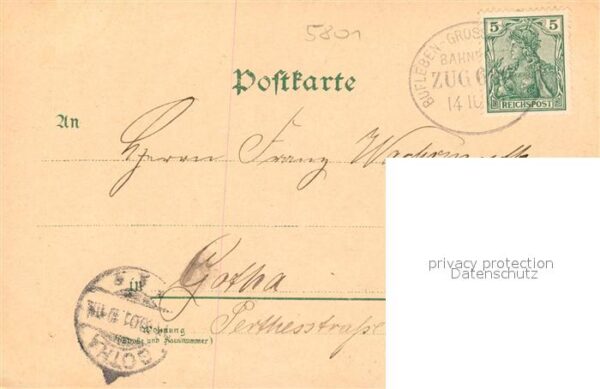 5801
BUFLEBEN-GROSS
BAHNP
ZUG
14 10
5 5
REICHSPOST
Postkarte
An
Herrn Franz
Gotha
in
Perthesstraße
(Wohnung
(Straße und Hausnummer)
GOTHA
privacy protection
Datenschutz